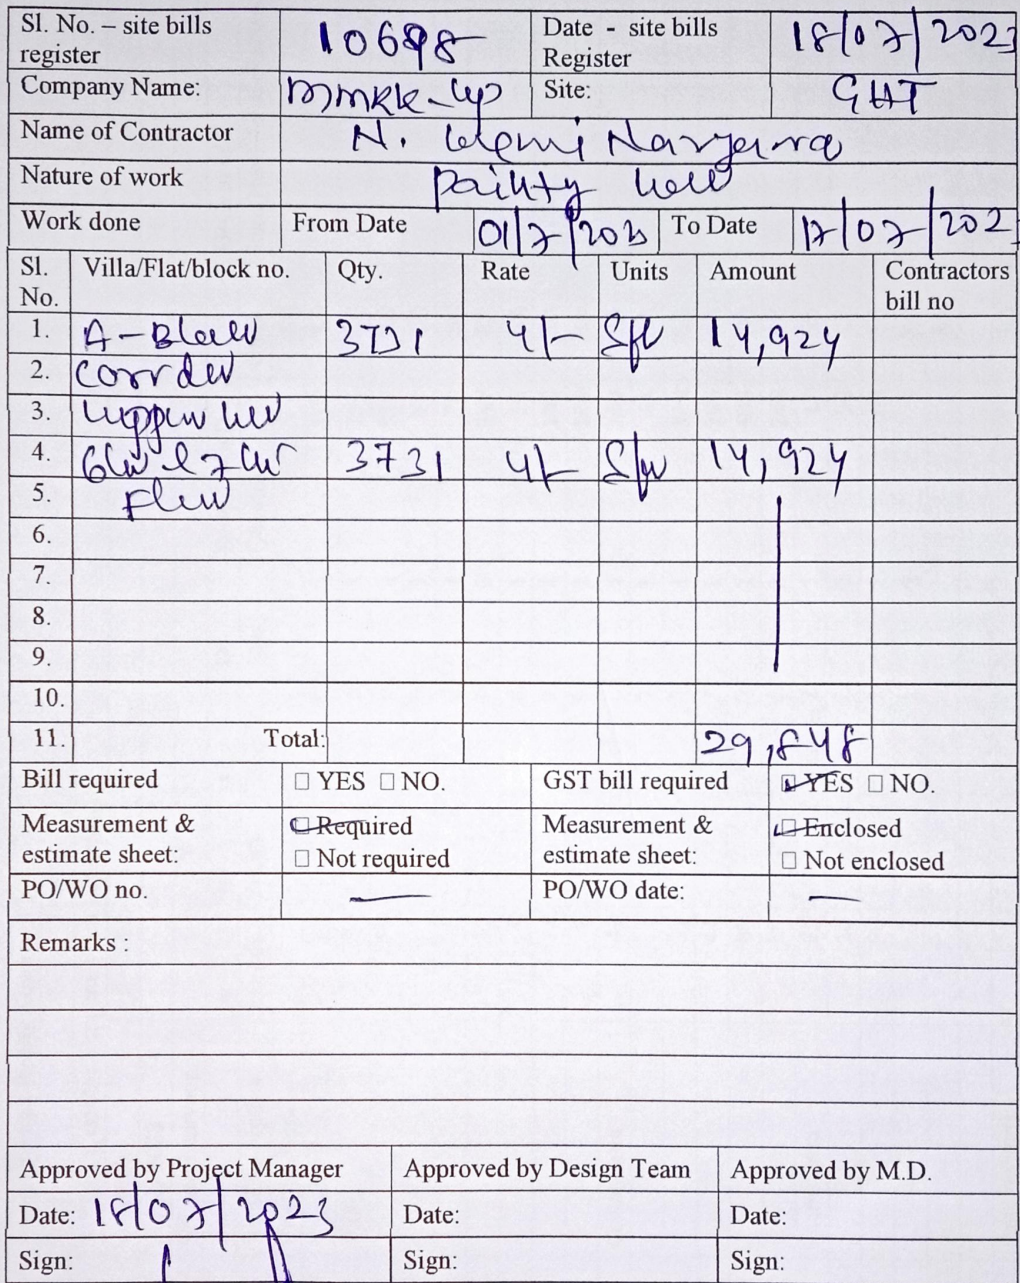 Sl. No. - site bills register 10698 Date - site bills Register 18/07/202
Company Name: Site: GHT
Name of Contractor N. Narayana
Nature of work
Work done From Date 01/7/2023 To Date 17/07/202
Sl. No. Villa/Flat/block no. Qty. Rate Units Amount Contractors bill no
1. A - Block 3731 4/- Sft 14,924
2. Corridor
3.
4. 3731 4/- Sft 14,924
5. Floor
6.
7.
8.
9.
10.
11. Total: 29,848
Bill required □ YES □ NO. GST bill required □ YES □ NO.
Measurement & estimate sheet: □ Required Measurement & estimate sheet: □ Enclosed
□ Not required □ Not enclosed
PO/WO no. — PO/WO date: —
Remarks :
Approved by Project Manager Approved by Design Team Approved by M.D.
Date: 18/07/2023 Date: Date:
Sign: Sign: Sign: